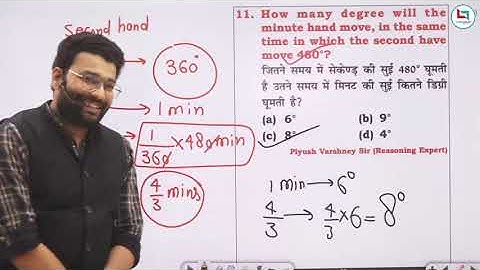 second hand
360°
→ 1 min
1/360 × 480 min
4/3 mins
11. How many degree will the
minute hand move, in the same
time in which the second have
move 480°?
जितने समय में सेकेण्ड की सुई 480° घूमती
है उतने समय में मिनट की सुई कितने डिग्री
घूमती है?
(a) 6° (b) 9°
(c) 8° (d) 4°
Piyush Varshney Sir (Reasoning Expert)
1 min → 6°
4/3 → 4/3 × 6 = 8°